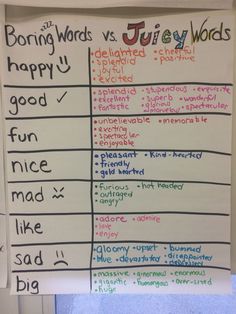 Boring Words vs. Juicy Words
zzz
happy
• delighted • cheerful
• splendid • positive
• joyful
• excited
good
• splendid • stupendous • exquisite
• excellent • superb • wonderful
• fantastic • glorious • spectacular
fun
• unbelievable • memorable
• exciting
• spectacular
• enjoyable
nice
• pleasant • kind-hearted
• friendly
• gold hearted
mad
• furious • hot headed
• outraged
• angry
like
• adore • admire
• love
• enjoy
sad
• gloomy • upset • bummed
• blue • devastated • disappointed
• depressed
big
• massive • ginormous • enormous
• gigantic • humongous • over-sized
• huge